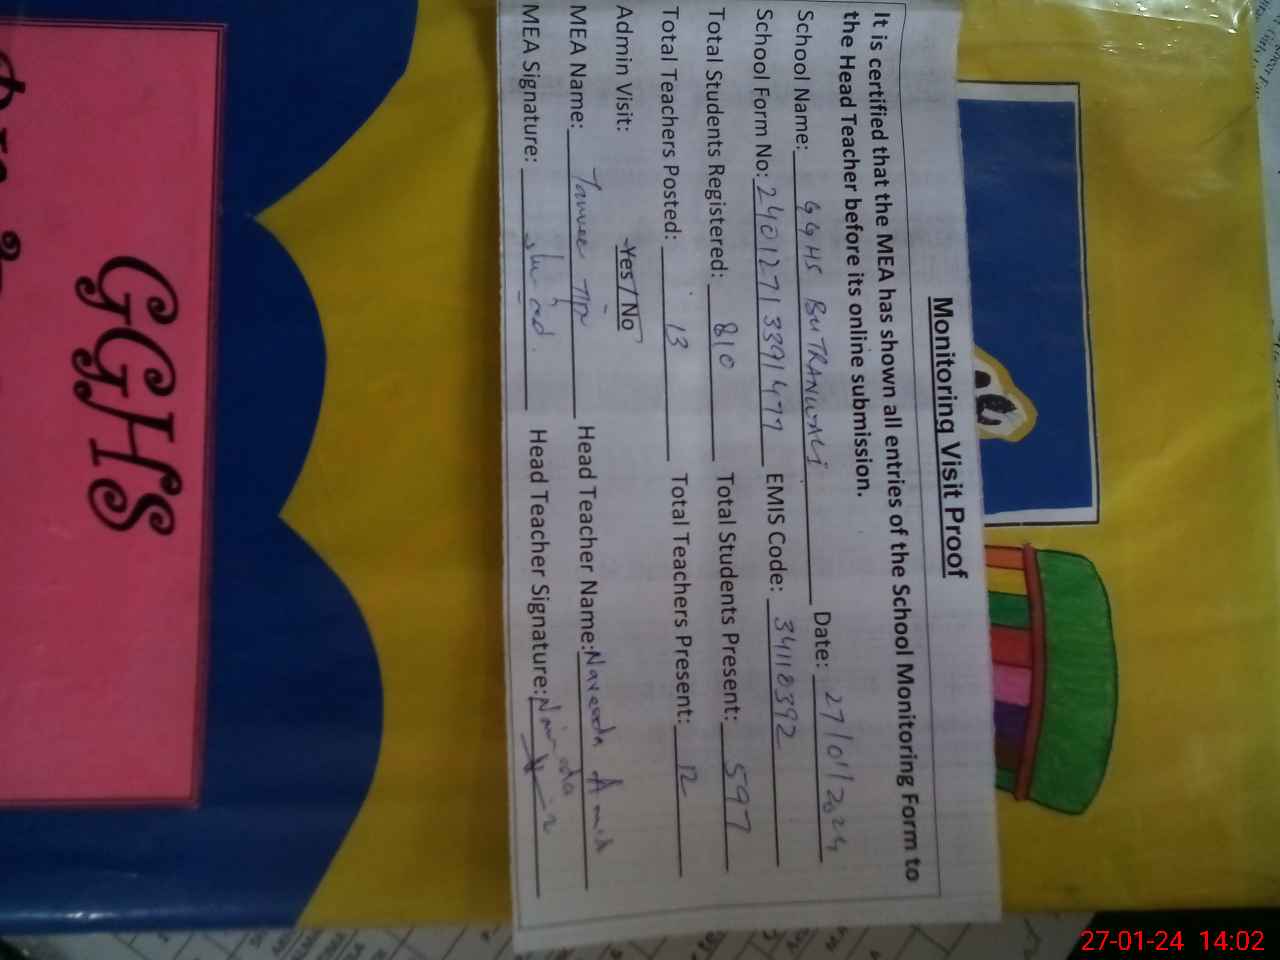 Monitoring Visit Proof
It is certified that the MEA has shown all entries of the School Monitoring Form to
the Head Teacher before its online submission.
School Name: GGHS BUTRANWALI Date: 27/01/2024
School Form No: 24012713391477 EMIS Code: 34110392
Total Students Registered: 810 Total Students Present: 597
Total Teachers Posted: 13 Total Teachers Present: 12
Admin Visit: Yes / No
MEA Name: Head Teacher Name:
MEA Signature: Head Teacher Signature:
GGHS
27-01-24 14:02